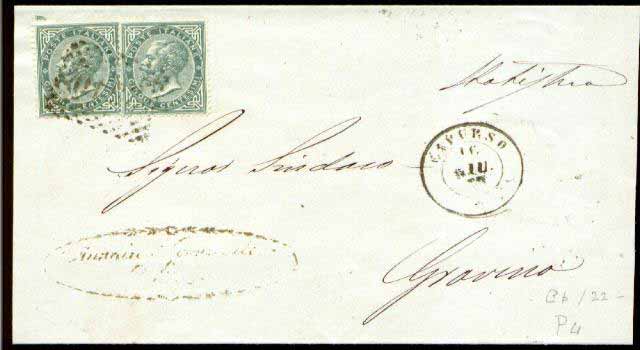 POSTE ITALIANE CINQUE CENTESIMI
POSTE ITALIANE CINQUE CENTESIMI
Statistica
CAPURSO
16
GIU.
Signor Sindaco
Gravina
Cb/22-
P4